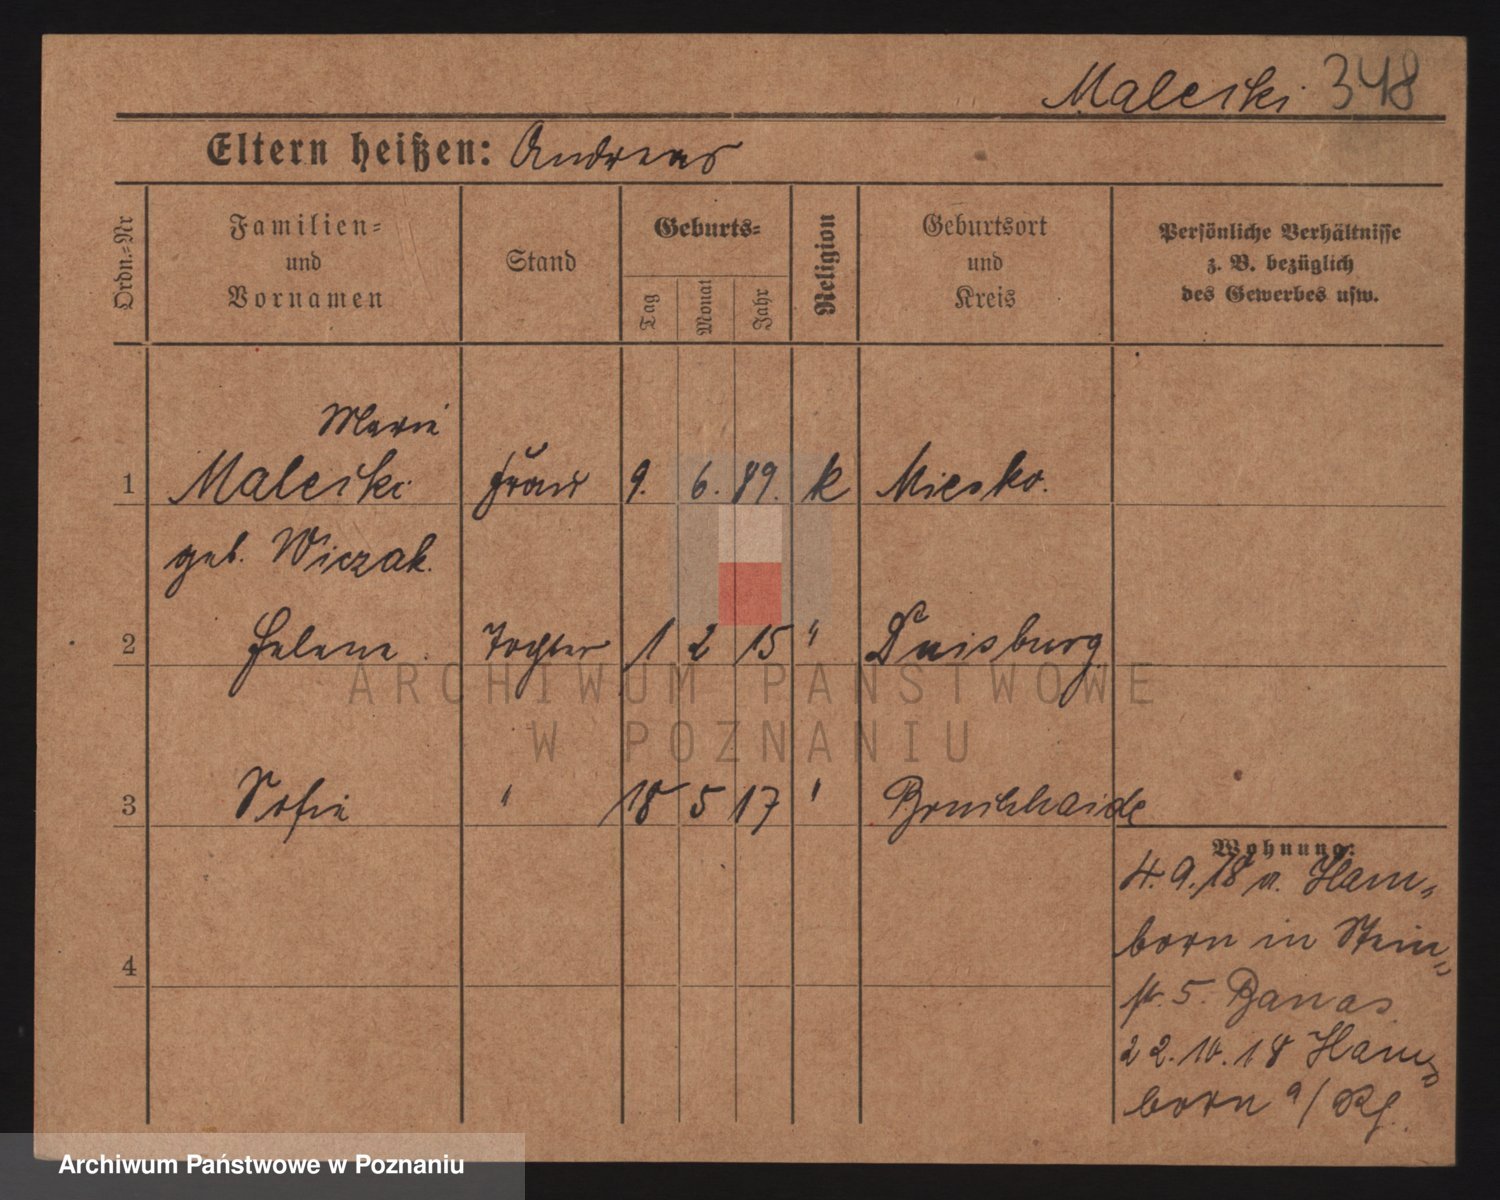 Maleiki 348
Eltern heißen: Andreas
Ordn.-Nr
Familien=
und
Vornamen
Stand
Geburts=
Tag
Monat
Jahr
Religion
Geburtsort
und
Kreis
Persönliche Verhältnisse
z. B. bezüglich
des Gewerbes usw.
Marie
1 Maleiki Frau 9. 6. 89. k Miesko.
geb. Wiczak.
2 Helene Tochter 1 2 15 " Duisburg
3 Sofie " 18 5 17 " Bruchhaide
Wohnung:
4. 9. 18 a. Ham=
born in Stein=
str. 5. Banas
4
22. 10. 18 Ham=
born a/Rh.
ARCHIWUM PAŃSTWOWE
W POZNANIU
Archiwum Państwowe w Poznaniu